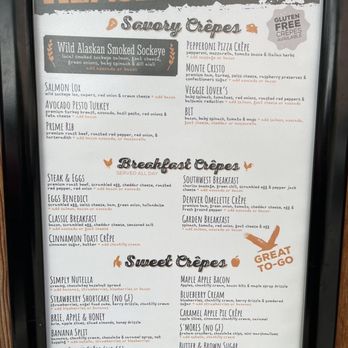 Savory Crêpes
GLUTEN
FREE
CRÊPES
AVAILABLE
Wild Alaskan Smoked Sockeye
local smoked sockeye salmon, goat cheese,
green onions, baby spinach & dill aioli
+ add avocado or bacon
Salmon Lox
wild sockeye lox, capers, red onion & cream cheese + add bacon
Avocado Pesto Turkey
premium turkey breast, avocado, basil pesto, red onions &
feta cheese + add bacon
Prime Rib
premium roast beef, roasted red pepper, red onion, &
horseradish + add mushrooms or bacon
Pepperoni Pizza Crêpe
pepperoni, mozzarella, tomato sauce & italian herbs
+ add mushrooms
Monte Cristo
premium ham, turkey, swiss cheese, raspberry preserves &
confectioners sugar + add avocado or bacon
Veggie Lover's
baby spinach, tomatoes, red onion, goat cheese, red peppers &
balsamic reduction + add salmon, goat cheese or bacon
BLT
bacon, baby spinach, tomatoes, mayo, red onion
+ add avocado, mushrooms or salmon
Breakfast Crêpes
SERVED ALL DAY
Steak & Eggs
premium roast beef, scrambled egg, cheddar cheese, roasted
red pepper, red onion
+ add salmon, avocado or bacon
Eggs Benedict
+ add salmon, avocado or bacon
Classic Breakfast
bacon, scrambled egg, cheddar cheese, seasoned salt
+ add avocado or goat cheese
Cinnamon Toast Crêpe
cinnamon sugar, butter + add chantilly cream
Southwest Breakfast
chorizo sausage, green chili, scrambled egg & pepper jack
cheese + add avocado or goat cheese
Denver Omelette Crêpe
+ add salmon, avocado or bacon
Garden Breakfast
+ add salmon, avocado or bacon
GREAT
TO-GO
Sweet Crêpes
Simply Nutella
creamy, chocolatey hazelnut spread
+ add bananas, strawberries, blueberries or bacon
Strawberry Shortcake (no GF)
+ add bananas, blueberries or nutella
Brie, Apple & Honey
brie, apple slices, sliced almonds, honey drizzle
Banana Split
+ add strawberries, blueberries
Maple Apple Bacon
apples, chantilly cream, bacon bits & maple syrup drizzle
Blueberry Cream
Caramel Apple Pie Crêpe
apple slices, cinnamon, chantilly cream, caramel
S'mores (no GF)
Butter & Brown Sugar